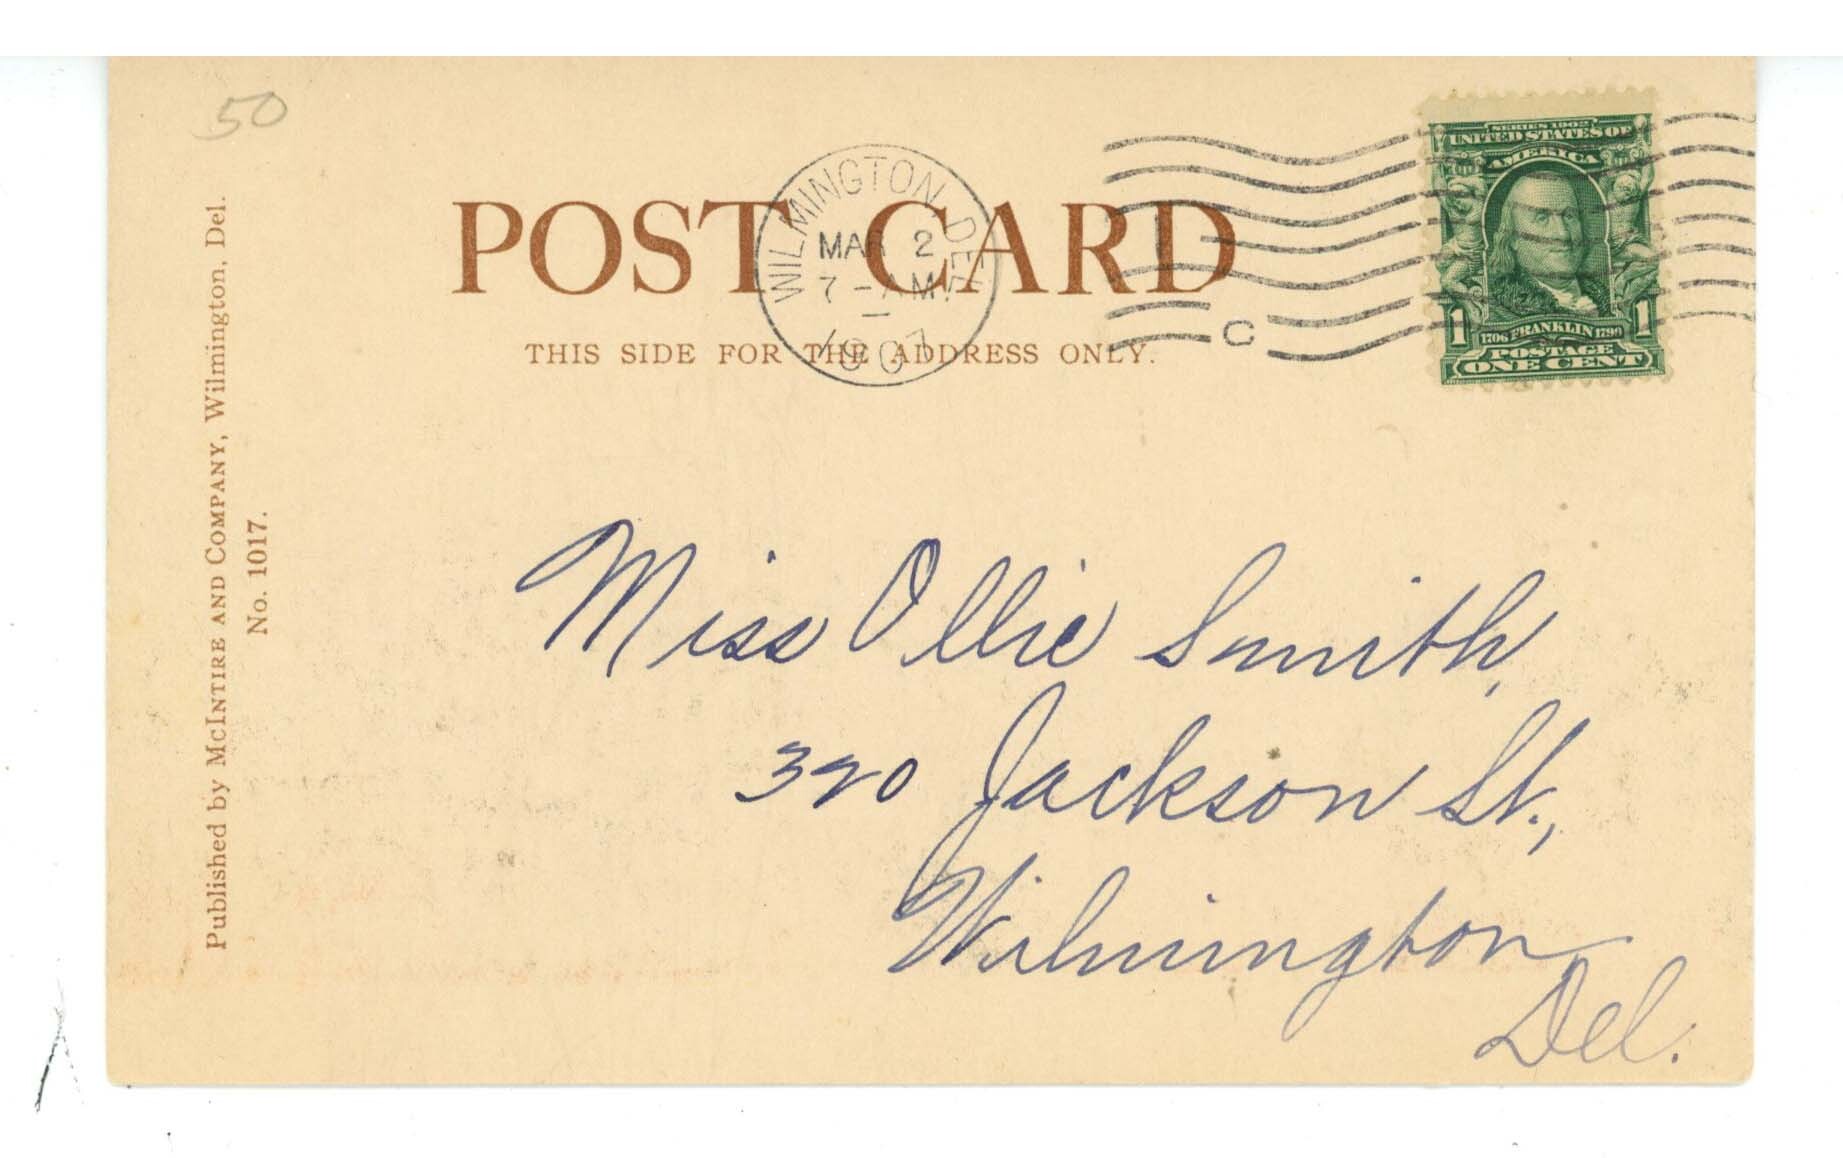 50
POST CARD
THIS SIDE FOR THE ADDRESS ONLY.
WILMINGTON, DEL.
MAR 2
7-AM
1907
C
SERIES 1902
UNITED STATES OF
AMERICA
1 1706 FRANKLIN 1790 1
POSTAGE
ONE CENT
Published by McIntire and Company, Wilmington, Del.
No. 1017.
Miss Ollie Smith,
320 Jackson St.,
Wilmington
Del.